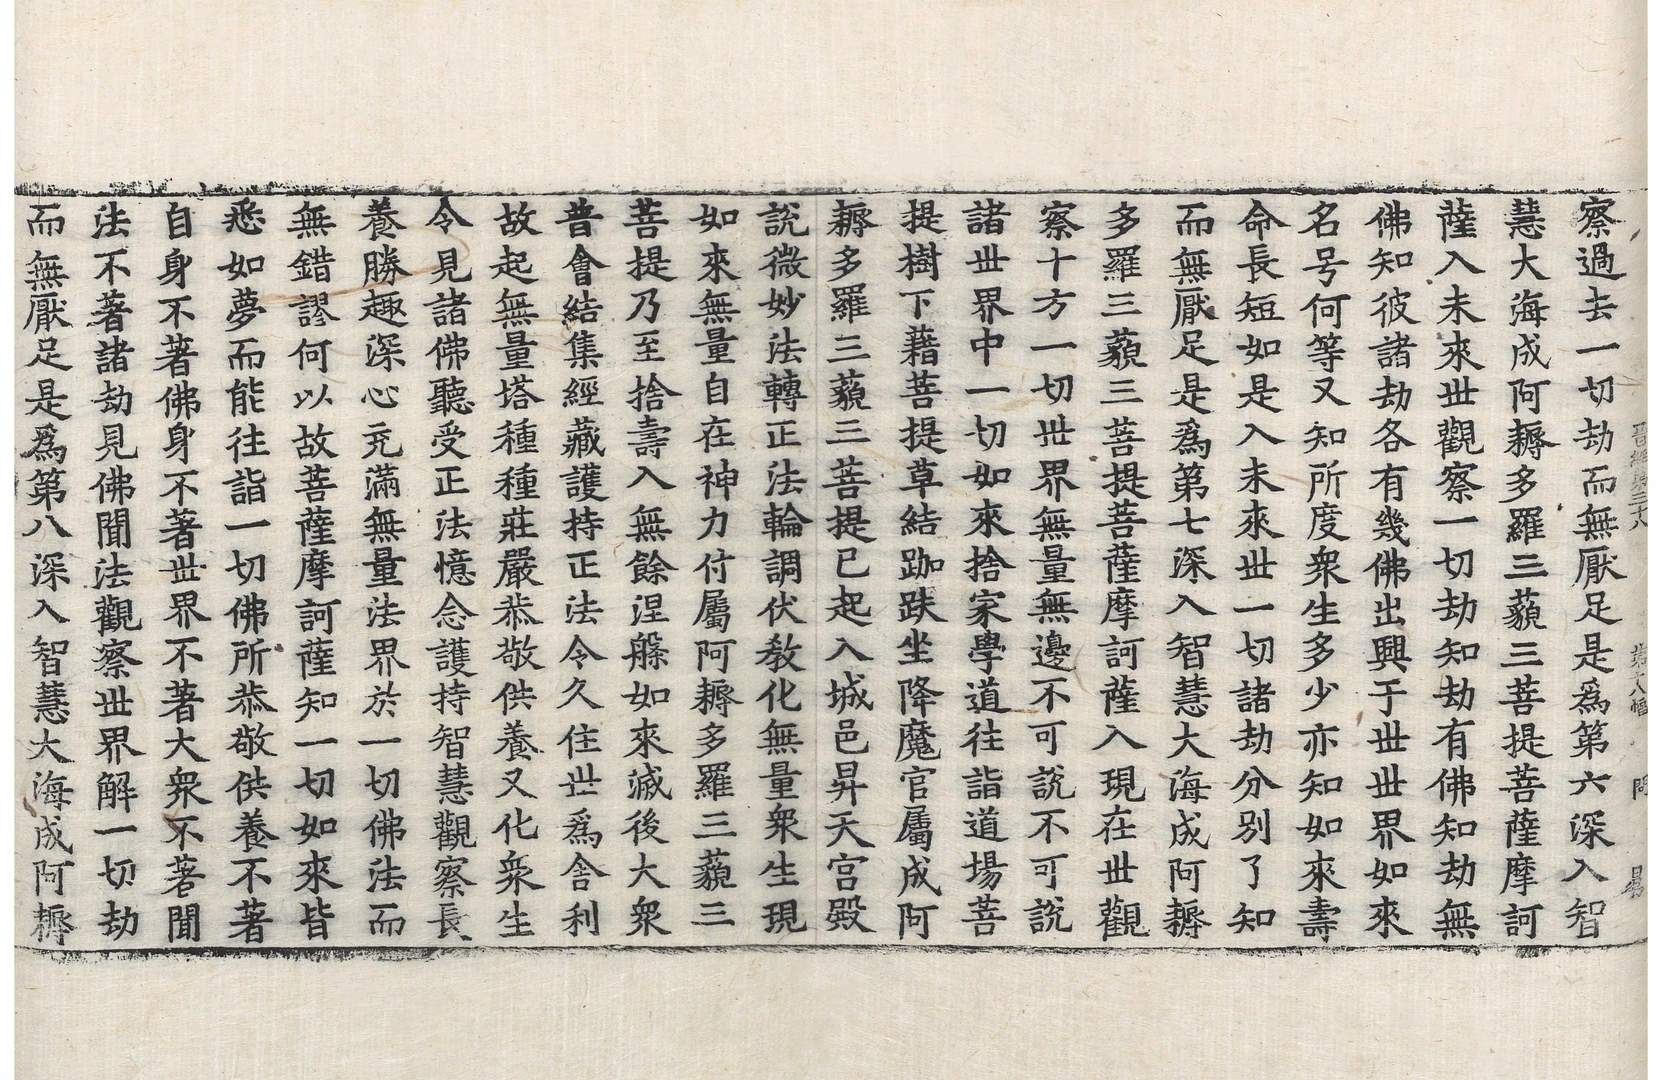 察過去一切劫而無厭足是爲第六深入智
慧大海成阿耨多羅三藐三菩提菩薩摩訶
薩入未來世觀察一切劫知劫有佛知劫無
佛知彼諸劫各有幾佛出興于世世界如來
名号何等又知所度衆生多少亦知如來壽
命長短如是入未來世一切諸劫分別了知
而無厭足是爲第七深入智慧大海成阿耨
多羅三藐三菩提菩薩摩訶薩入現在世觀
察十方一切世界無量無邊不可說不可說
諸世界中一切如來捨家學道往詣道場菩
提樹下藉菩提草結跏趺坐降魔官屬成阿
耨多羅三藐三菩提已起入城邑昇天宮殿
說微妙法轉正法輪調伏教化無量衆生現
如來無量自在神力付屬阿耨多羅三藐三
菩提乃至捨壽入無餘涅槃如來滅後大衆
普會結集經藏護持正法令久住世爲舍利
故起無量塔種種莊嚴恭敬供養又化衆生
令見諸佛聽受正法憶念護持智慧觀察長
養勝趣深心充滿無量法界於一切佛法而
無錯謬何以故菩薩摩訶薩知一切如來皆
悉如夢而能往詣一切佛所恭敬供養不著
自身不著佛身不著世界不著大衆不著聞
法不著諸劫見佛聞法觀察世界解一切劫
而無厭足是爲第八深入智慧大海成阿耨